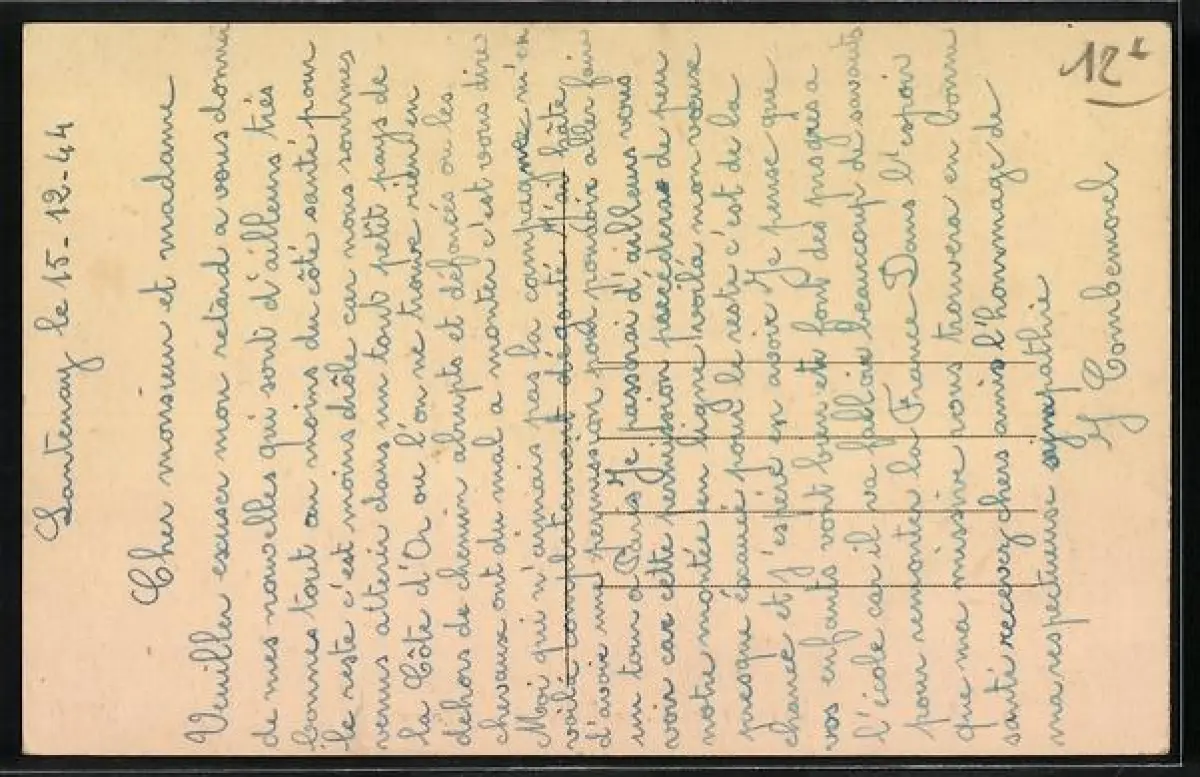 Santenay le 15-12-44
Cher monsieur et madame
Veuillen excuser mon retard a vous donni
de mes nouvelles qui sont d'ailleurs trés
bonnes tout au moins du côté santé pour
le reste c'est moins drôle car nous sommes
venus atterir dans un tout petit pays de
la Côte d'Or ou l'on ne trouve rien en
dehors de chemin abrupts et défoncés ou les
chevaux ont du mal a monter c'est vous dire
Moi qui n'aimais pas la campagne m'en
voilà complétement dégouté J'ai hâte
d'avoir une permission pour pouvoir aller fair
un tour a Paris Je passerai d'ailleurs vous
voir car cette permission précédera de peu
notre montée en ligne voilà mon voeux
presque éxaucé pour le reste c'est de la
chance et J'espère en avoir Je pense que
vos enfants vont bien et font des progres a
l'école car il va falloir beaucoup de savants
pour remonter la France Dans l'espoir
que ma missive vous trouvera en bonne
santé recevez chers amis l'hommage de
ma respectueuse sympathie
12+